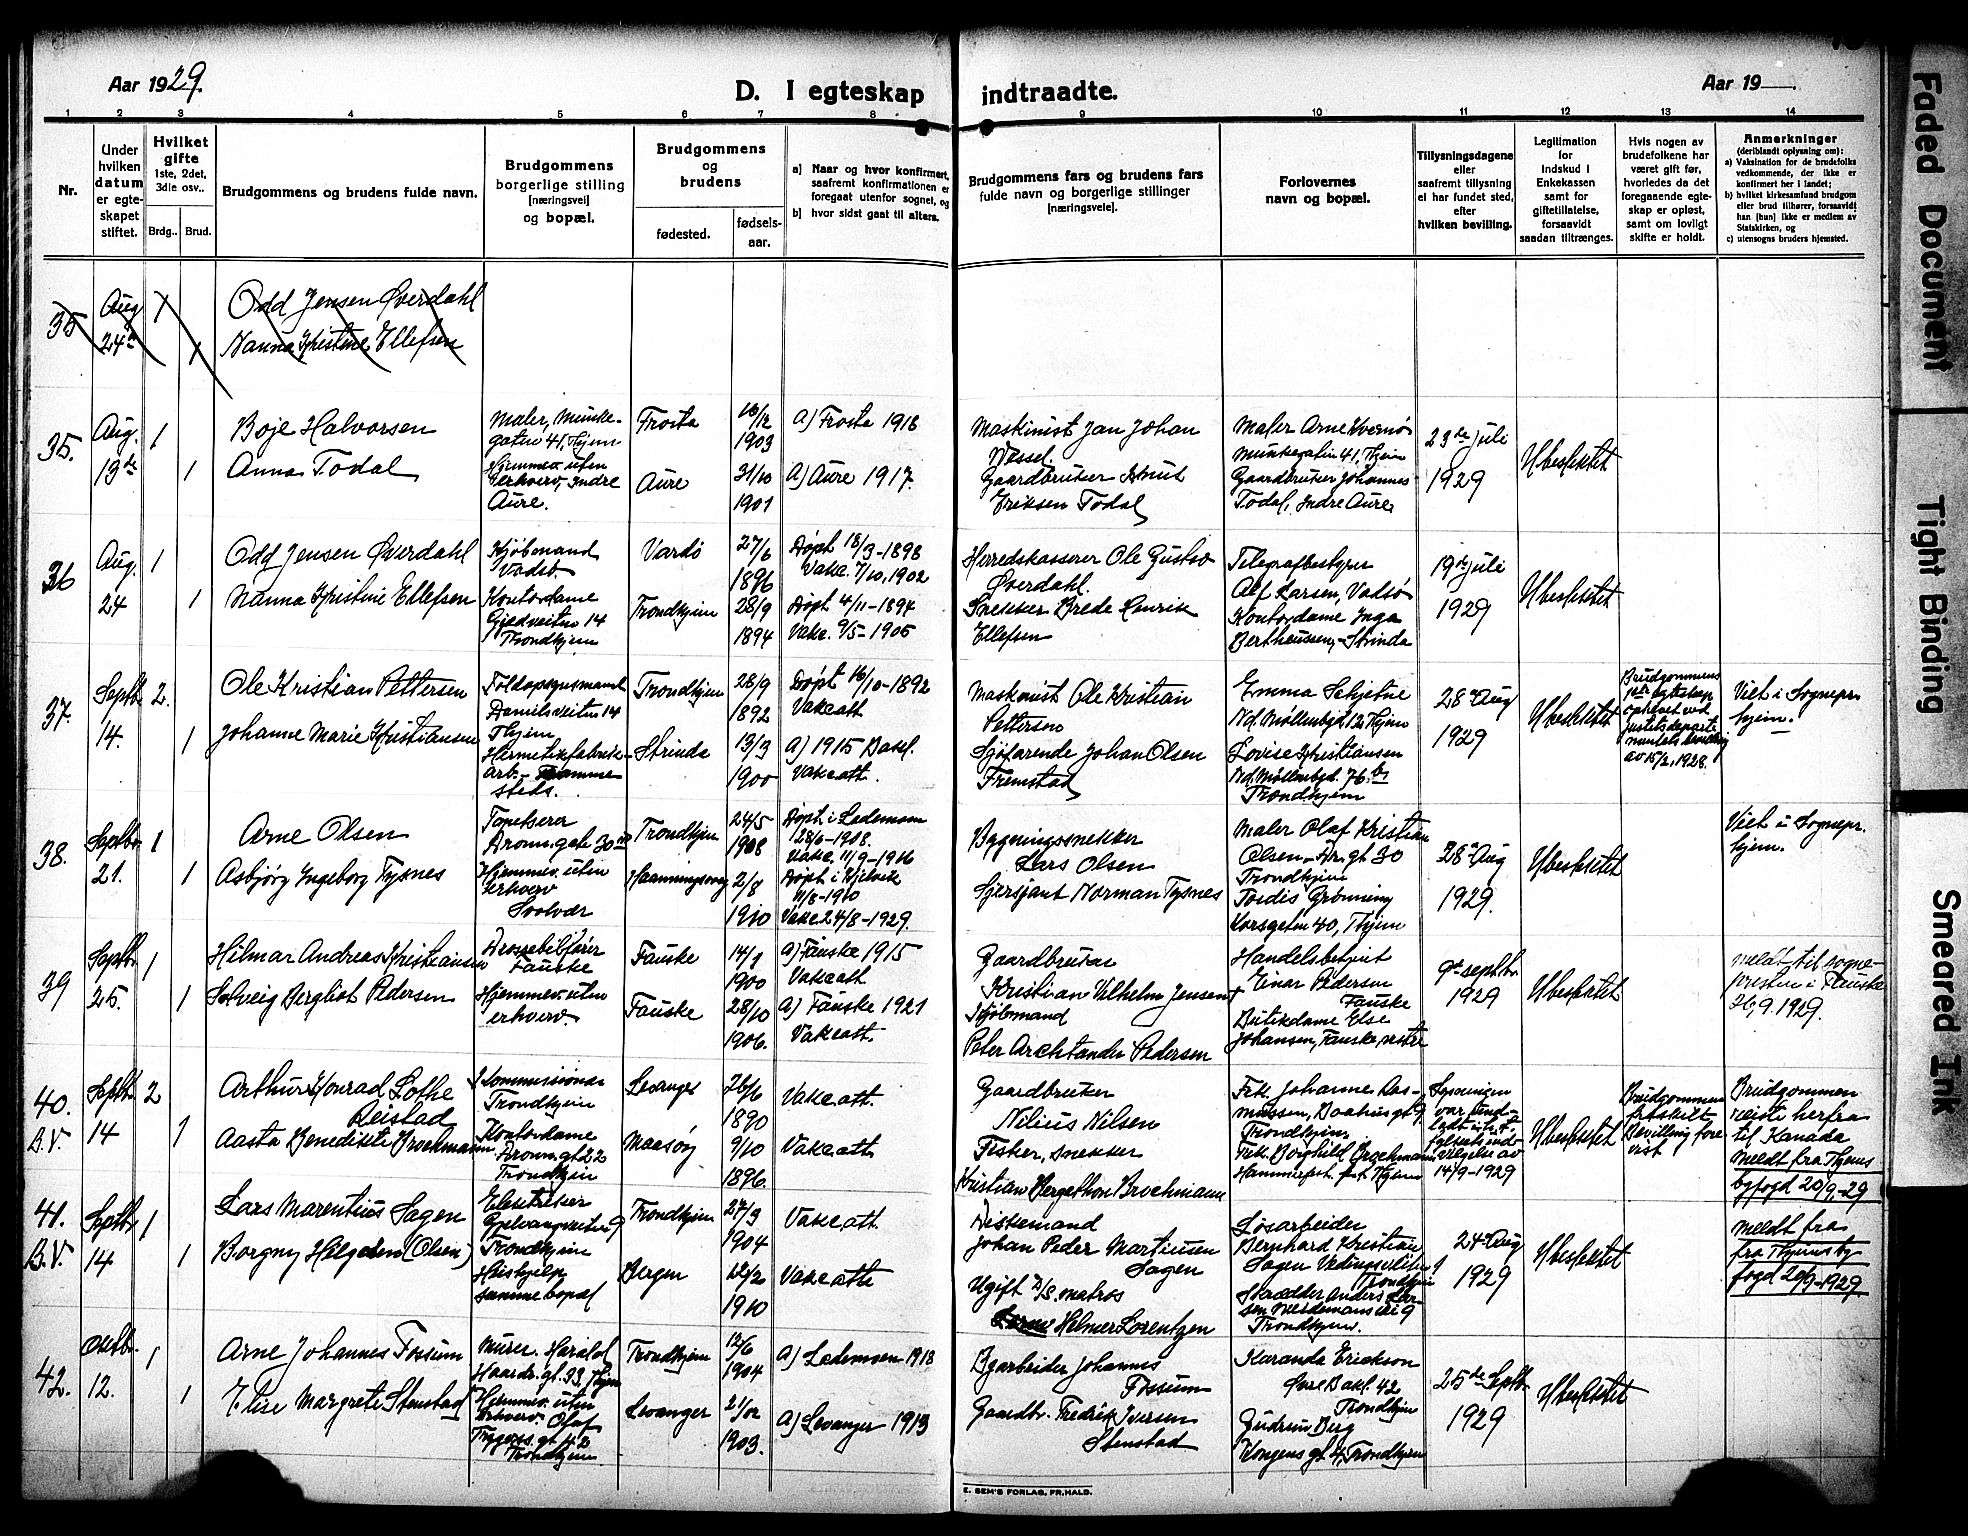 Aar 1929.
D. I egteskap
indtraadte.
Aar 19
Faded Document
Tight Binding
Smeared Ink
1 2 3 4 5 6 7 8 9 10 11 12 13 14
Nr.
Under
hvilken
datum
er egte-
skapet
stiftet.
Hvilket
gifte
1ste, 2det,
3die osv..
Brdg..
Brud.
Brudgommens og brudens fulde navn.
Brudgommens
borgerlige stilling
[næringsvei]
og bopæl.
Brudgommens
og
brudens
fødested.
fødsels-
aar.
a) Naar og hvor konfirmert,
saafremt konfirmationen er
foregaat utenfor sognet, og
b) hvor sidst gaat til alters.
Brudgommens fars og brudens fars
fulde navn og borgerlige stillinger
[næringsveie].
Forlovernes
navn og bopæl.
Tillysningsdagene
eller
saafremt tillysning
ei har fundet sted,
efter
hvilken bevilling.
Legitimation
for
indskud i
Enkekassen
samt for
giftetillatelse,
forsaavidt
saadan tiltrænges.
Hvis nogen av
brudefolkene har
været gift før,
hvorledes da det
foregaaende egte-
skap er opløst,
samt om lovligt
skifte er holdt.
Anmerkninger
(deriblandt oplysning om):
a) Vaksination for de brudefolks
vedkommende, der ikke er
konfirmert her i landet;
b) hvilket kirkesamfund brudgom
eller brud tilhører, forsaavidt
han [hun] ikke er medlem av
Statskirken, og
c) utensogns bruders hjemsted.
35
Aug
24de
1
1
Odd Jensen Øverdahl
Nanna Kristine Ellefsen
35.
Aug.
13de
1
1
Boje Halvorsen
Anna Todal
Maler, Munke-
gaten 41, Thjem
Hjemmev. uten
erhverv, Indre
Aure.
Frosta
Aure
16/12
1903
31/10
1901
A) Frosta 1918
A) Aure 1917.
Maskinist Jan Johan
Wessel.
Gaardbruker Knut
Eriksen Todal
Maler Arne
Munkegaten 41, Thjem
Gaardbruker Johannes
Todal, Indre Aure
23de juli
1929
Ubeskattet
36
Aug.
24
1
1
Odd Jensen Øverdahl
Nanna Kristine Ellefsen
Kjøbmand
Vadsø.
Kontordame
Gjedveiten 14
Trondhjem
Vardø
Trondhjem
27/6
1896
28/9
1894
Døpt 18/3-1898
Vakc. 7/10, 1902
Døpt 4/11-1894
Vakc. 9/5-1905
Herredskasserer Ole Gustav
Øverdahl.
Snekker Brede Henrik
Ellefsen
Telegrafbestyrer
Alf Larsen, Vadsø
Kontordame Inga
Bertheussen, Strinda
19de juli
1929
Ubeskattet
37.
Septb.
14.
2.
1
Ole Kristian Pettersen
Johanne Marie Kristiansen
Danielsveiten 14
Thjem
Hermetikfabrik-
arb. - samme
steds.
Trondhjem
Strinda
28/9
1892
13/3
1900
Døpt 16/10-1892
Vakcatt
A) 1915 Bakl.
Vakcatt.
Maskinist Ole Kristian
Petterson
Sjøfarende Johan Olsen
Fremstad
Emma Schjetne
Nd. Møllenbgt 12, Thjem
Lovise Kristiansen
Nd. Møllenbgt. 76 b,
Trondhjem
28 Aug
1929
Ubeskattet
Brudgommens
egteskap
ophævet ved
justitsdeparte-
mentets bevilling
av 15/2, 1928.
Viet i Sognepr.
hjem.
38.
Septbr
21.
1
1
Arne Olsen
Asbjørg Ingeborg Tysnes
Tapetserer
Dronn.gate 30
Hjemmev. uten
erhverv
Svolvær
Trondhjem
24/5
1908
2/8
1910
Døpt i Lademoen
28/6-1908.
Vakc. 11/9-1916
Døpt i
11/8-1910
Vakc 24/8-1929.
Bygningssnekker
Lars Olsen
Sjersjant Norman Tysnes
Maler Olaf Kristian
Olsen - Dr. gt 30
Trondhjem
Tordis Grønning
Korsgaten 40, Thjem
28 Aug
1929.
Ubeskattet
Viet i Sognepr.
hjem.
39
Septbr
25.
1
1
Hilmar Andreas Kristiansen
Solveig Bergliot Pedersen
Drossebilfører
Fauske
Hjemmev. uten
erhverv.
Fauske
Fauske
14/1
1900
28/10
1906.
A) Fauske 1915
Vakcatt
A) Fauske 1921
Vakcatt.
Gaardbruker
Kristian Vilhelm Jensen
Kjøbmand
Peter Pedersen
Handelsbetjent
Einar Pedersen
Fauske
Butikdame Else
Johansen, Fauske
9de septbr
1929
Ubeskattet
meldt til sogne-
presten i Fauske
26/9. 1929.
40.
B.V.
Septb.
14
2
1
Arthur Konrad Lothe
Reistad
Aasta Benedikte Brochmann
Kommissionær
Trondhjem
Kontordame
Dronn. gt 22
Trondhjem
Levanger
Maasøy
26/6
1890
9/10
1896.
Vakcatt.
Vakcatt
Gaardbruker
Nilius Nilsen
Fisker, snekker
Kristian Bergethon Brochmann
Frk. Johanne Ras-
mussen,
Trondhjem
Frk. Borghild Brochmann
Lysningen
var
14/9-1929
Ubeskattet
Brudgommen
fraskilt
Bevilling fore-
vist
Brudgommen
reiste herfra
til Kanada
Meldt fra Thjems
byfogd 20/9-29
41.
B.V.
Septb.
14
1
1
Lars Marentius Sagen
Borgny Helgesen (Olsen)
Elektriker
Trondhjem
Hushjelp
samme bopæl
Trondhjem
Bergen
27/3
1904
1910
Vakcatt.
Vakcatt
Johan Peder Martinsen
Sagen
Ugift matros
Helmer Lorentzen
Løsarbeider
Bernhard Kristian
Sagen
Trondhjem
Skrædder Anders Lar-
sen
Trondhjem.
24 Aug
1929
Ubeskattet
Meldt fra
fra Thjems by-
fogd 20/9-1929
42.
Oktbr.
12.
1
1
Arne Johannes Fossum
Elise Margrete Stenstad
Murer. Harald
Haardr. gt. 33, Thjem
Hjemmev. uten
erhverv. Olaf
Trygvas. gt 42
Trondhjem.
Trondhjem
Levanger
12/6
1904
21/12
1903.
A) Lademoen 1918
A) Levanger 1913
Bgarbeider Johannes
Fossum
Gaardbr. Fredrik Iversen
Stenstad
Karanda Erickson
Øvre Bakl. 42
Trondhjem
Gudrun Berg
Kongens gt 4, Trondhjem
25de Septb.
1929
Ubeskattet
E. SEM'S FORLAG, FR.HALD.